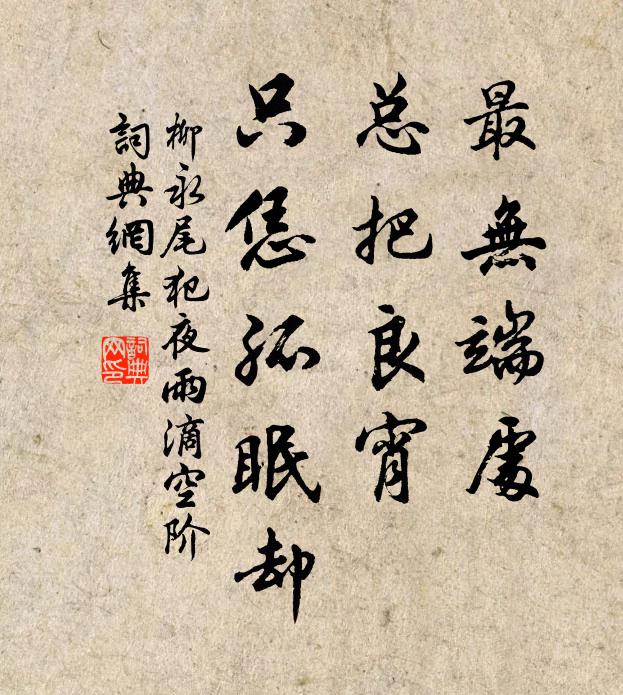 最無端處
总把良宵
只恁孤眠却
柳永尾犯夜雨滴空阶
詞典網集
詞典网印